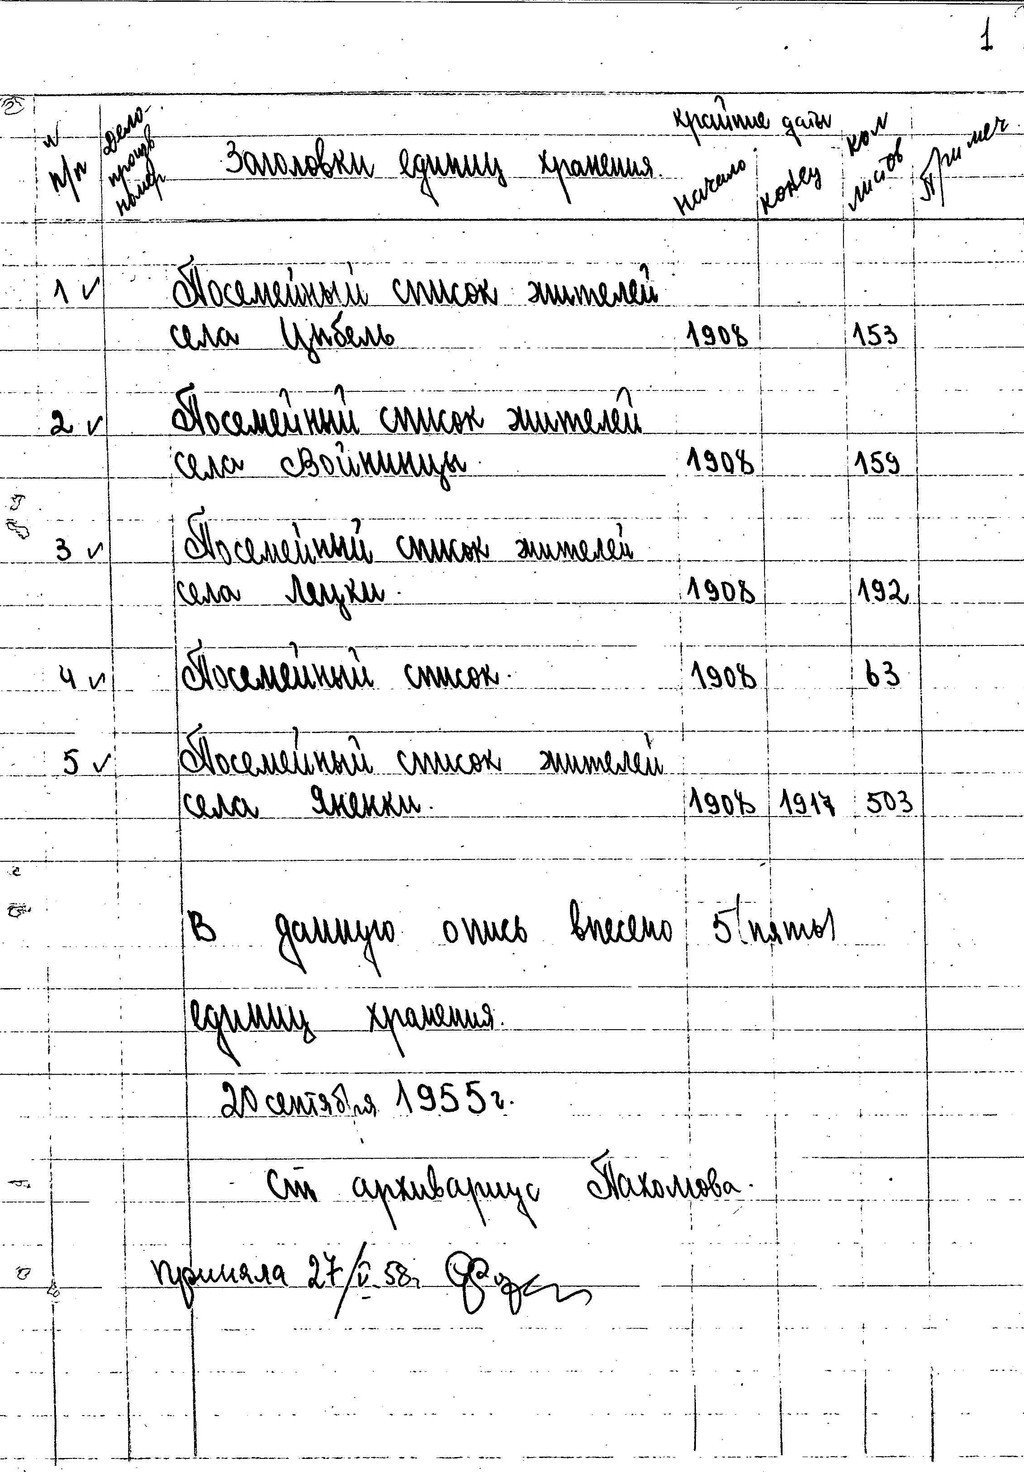 1
N п/п Дело-произв номер Заголовки единиц хранения. Крайние даты начало конец кол листов Примеч.
1 ✓ Посемейный список жителей
села Цибель 1908 153
2 ✓ Посемейный список жителей
села Войнинцы. 1908 159
3 ✓ Посемейный список жителей
села Лецки. 1908 192
4 ✓ Посемейный список. 1908 63
5 ✓ Посемейный список жителей
села Яненки. 1908 1917 503
В данную опись внесено 5 (пять)
единиц хранения.
20 сентября 1955 г.
Ст архивариус Пахомова.
приняла 27/V 58г.